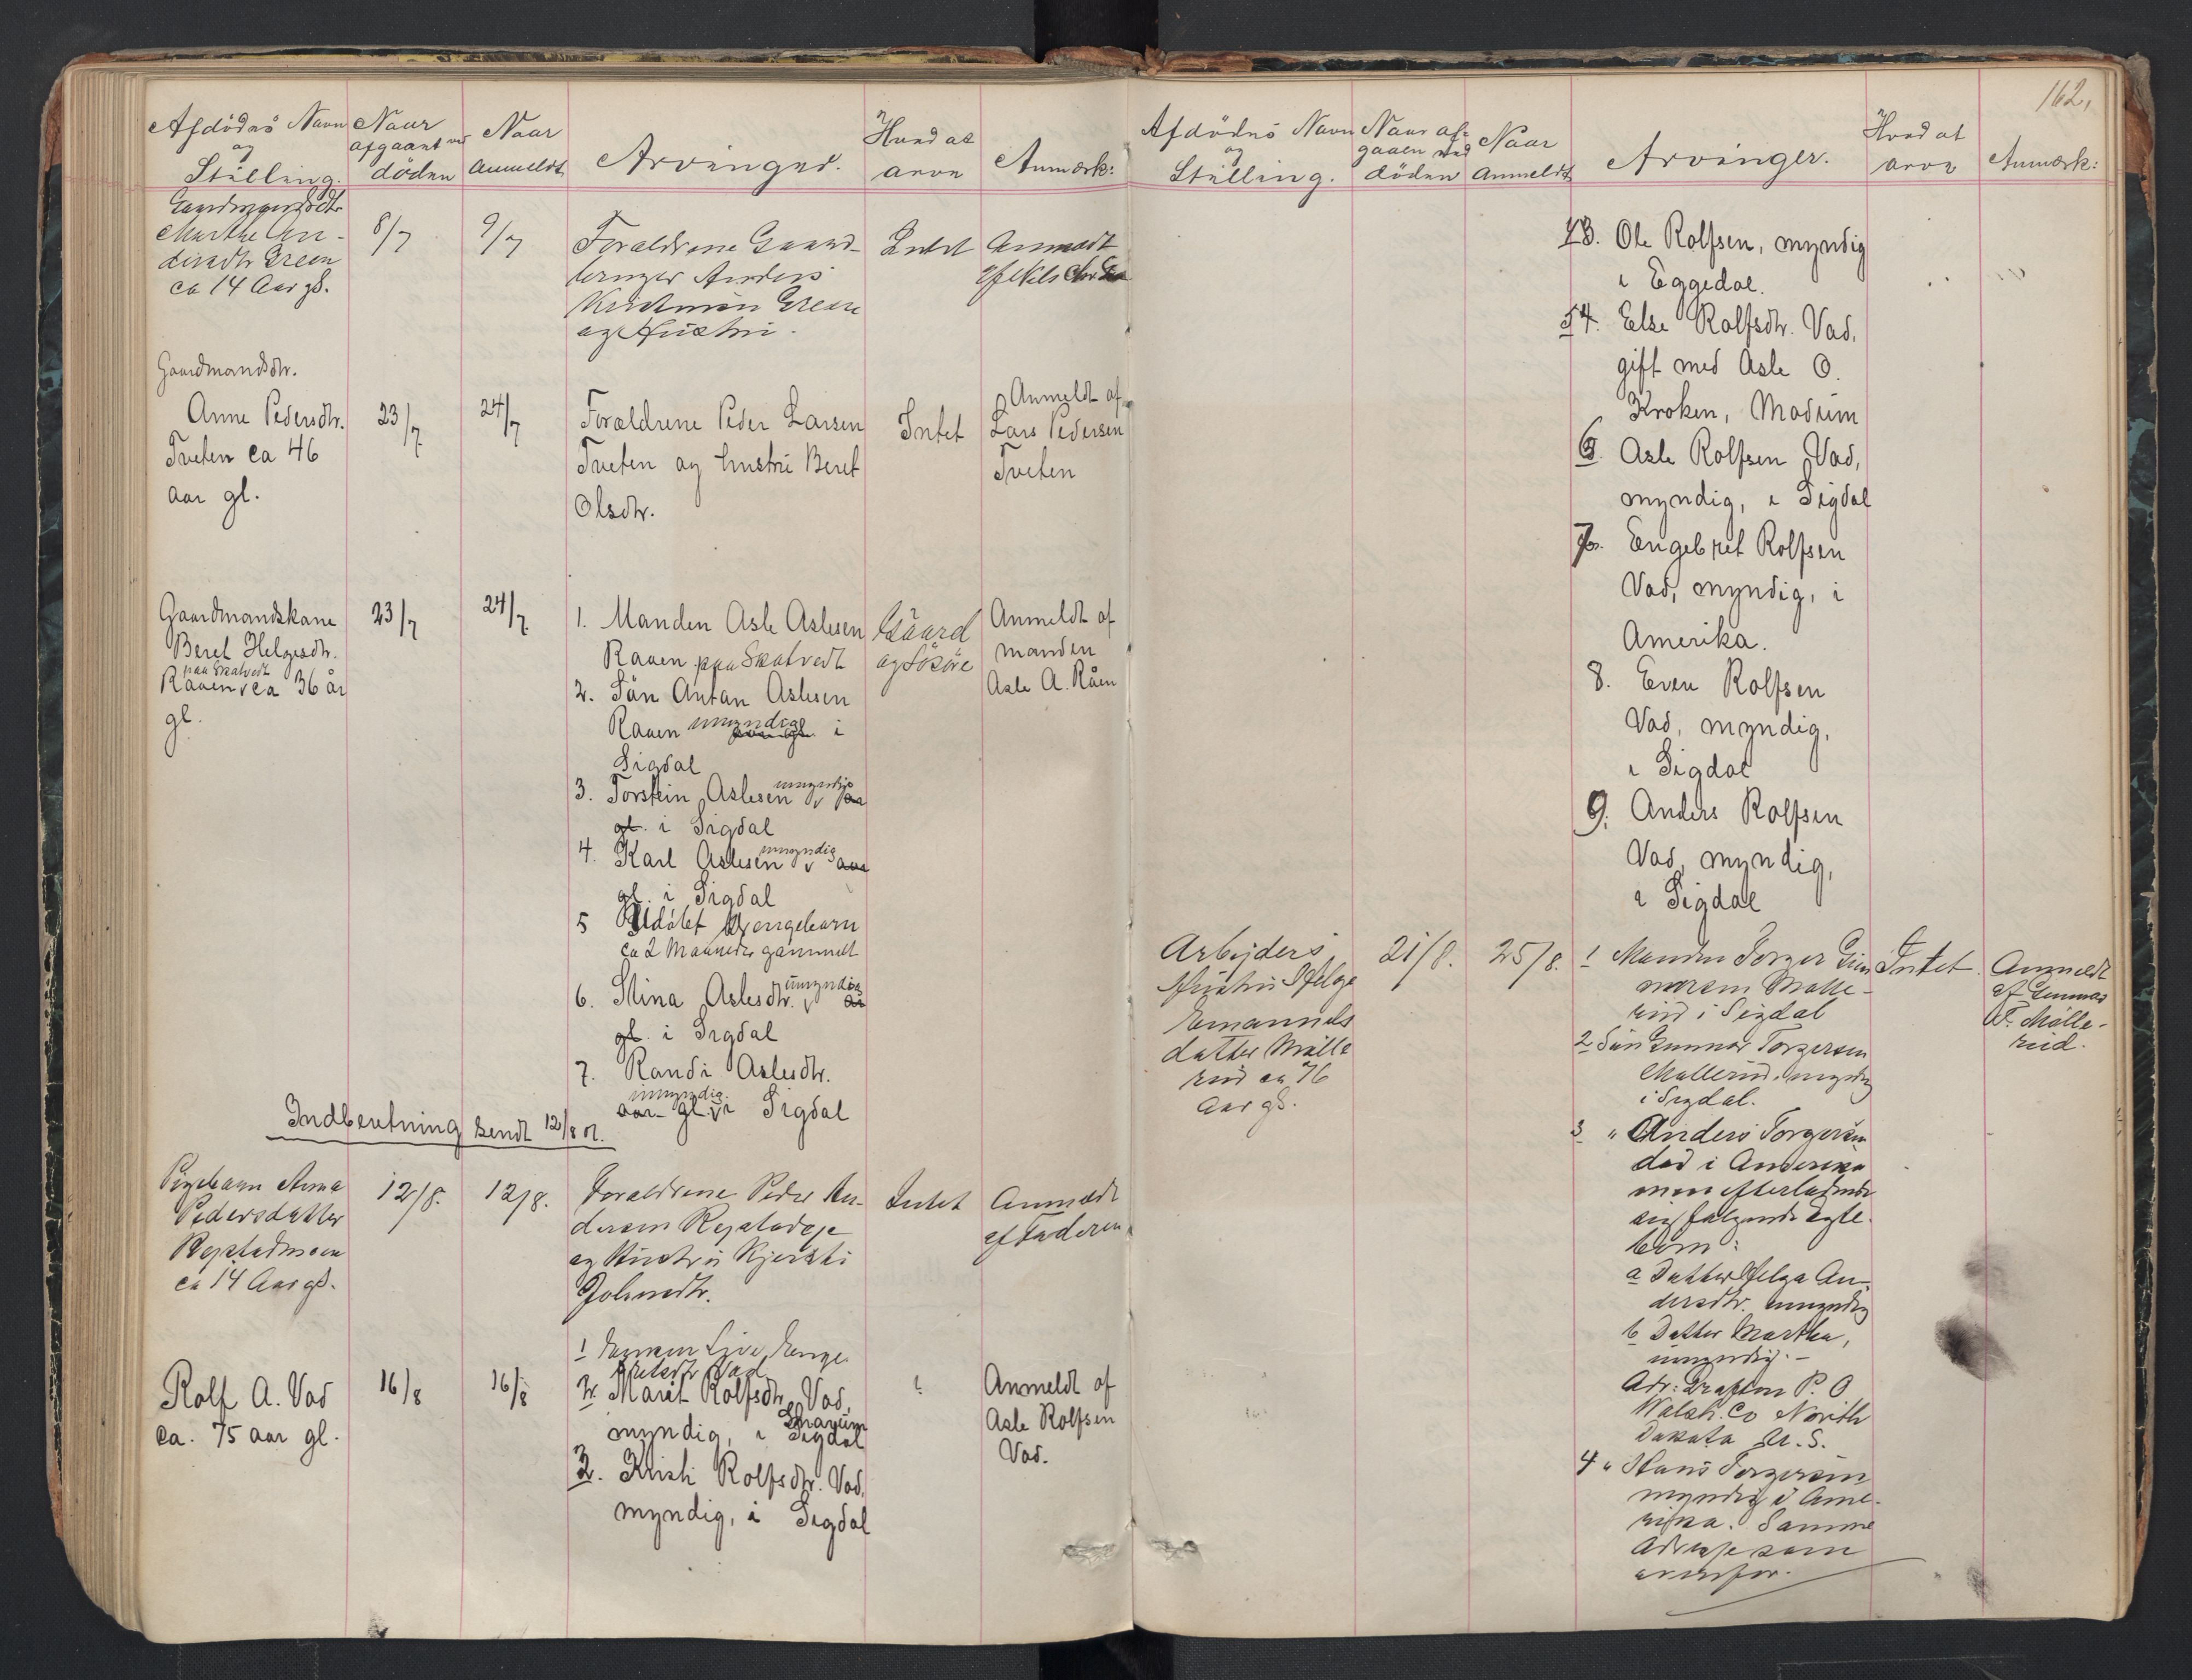 Afdødes Navn
og
Stilling.
Naar
afgaaet ved
døden
Naar
Anmeldt
Arvinger.
Hvad at
arve
Anmærk:
Marthe An-
dersdtr Green
ca 14 Aar gl.
8/7
9/7
Forældrene Gaard-
bruger Anders
Green
og Hustru.
Intet
Anmeldt
af Nils
Gaardmandsdtr.
Anne Pedersdtr.
Tveten ca 46
aar gl.
23/7
24/7
Forældrene Peder Larsen
Tveten og hustru Beret
Olsdtr.
Intet
Anmeldt af
Lars Pedersen
Tveten
Gaardmandskone
Beret Helgesdtr.
paa Skatvedt
Raaen v ca 36 år
gl.
23/7
24/7
1. Manden Asle Aslesen
Raaen paa Skatvedt
2. Søn Anton Aslesen
Raaen umyndig i
Sigdal
3. Torstein Aslesen v umyndig aar
gl. i Sigdal
4. Karl Aslesen v umyndig aar
gl. i Sigdal
5 Udøbt Drengebarn
ca 2 Maaneder gammelt
6. Stina Aslesdtr. v umyndig år
gl. i Sigdal
7. Randi Aslesdtr.
umyndig.
aar gl. v i Sigdal
Gaard
og Løsøre
Anmeldt af
manden
Asle A. Råen
Indberetning sendt 12/8 01.
Pigebarn Anna
Pedersdatter
ca 14 Aar gl.
12/8.
12/8.
Forældrene Peder An-
dersen
og Hustru Kjersti
Johnsdtr.
Intet
Anmeldt
af Faderen
Rolf A. Vad
ca. 75 aar gl.
16/8
16/8
1 Enken Live Enge-
bretsdtr Vad
2. Marit Rolfsdtr. Vad,
Snarum
myndig, i Sigdal
3. Kristi Rolfsdtr. Vad,
myndig, i Sigdal
?
Anmeldt af
Asle Rolfsen
Vad.
162,
Afdødes Navn
og
Stilling.
Naar af-
gaaen ved
døden
Naar
Anmeldt
Arvinger.
Hvad at
arve
Anmærk:
3. Ole Rolfsen, myndig
i Eggedal.
4. Else Rolfsdtr. Vad,
gift med Asle O.
Kroken, Modum
6. Asle Rolfsen Vad,
myndig, i Sigdal
7. Engebret Rolfsen
Vad, myndig, i
Amerika.
8. Even Rolfsen
Vad, myndig,
i Sigdal
9. Anders Rolfsen
Vad, myndig,
i Sigdal
Arbeiders
Hustru Helge
Emanuels
datter Mølle
rud ca 76
Aar gl.
21/8.
25/8.
1 Manden Torger Gun
narsen Mølle-
rud i Sigdal
2 Søn Gunnar Torgersen
Møllerud, myndig
i Sigdal.
3 " Anders Torgersen
død i Amerika
men efterladende
sig følgende ægte-
børn:
a Datter Helga An-
dersdtr. umyndig
b Datter Martha,
umyndig. -
Adr: Grafton P. O
Walsh. Co North
Dakota U. S.
4 " Hans Torgersen
myndig i Ame-
rika. Samme
Adresse som
ovenfor.
Intet
Anmeldt
af Gunnar
T. Mølle-
rud.